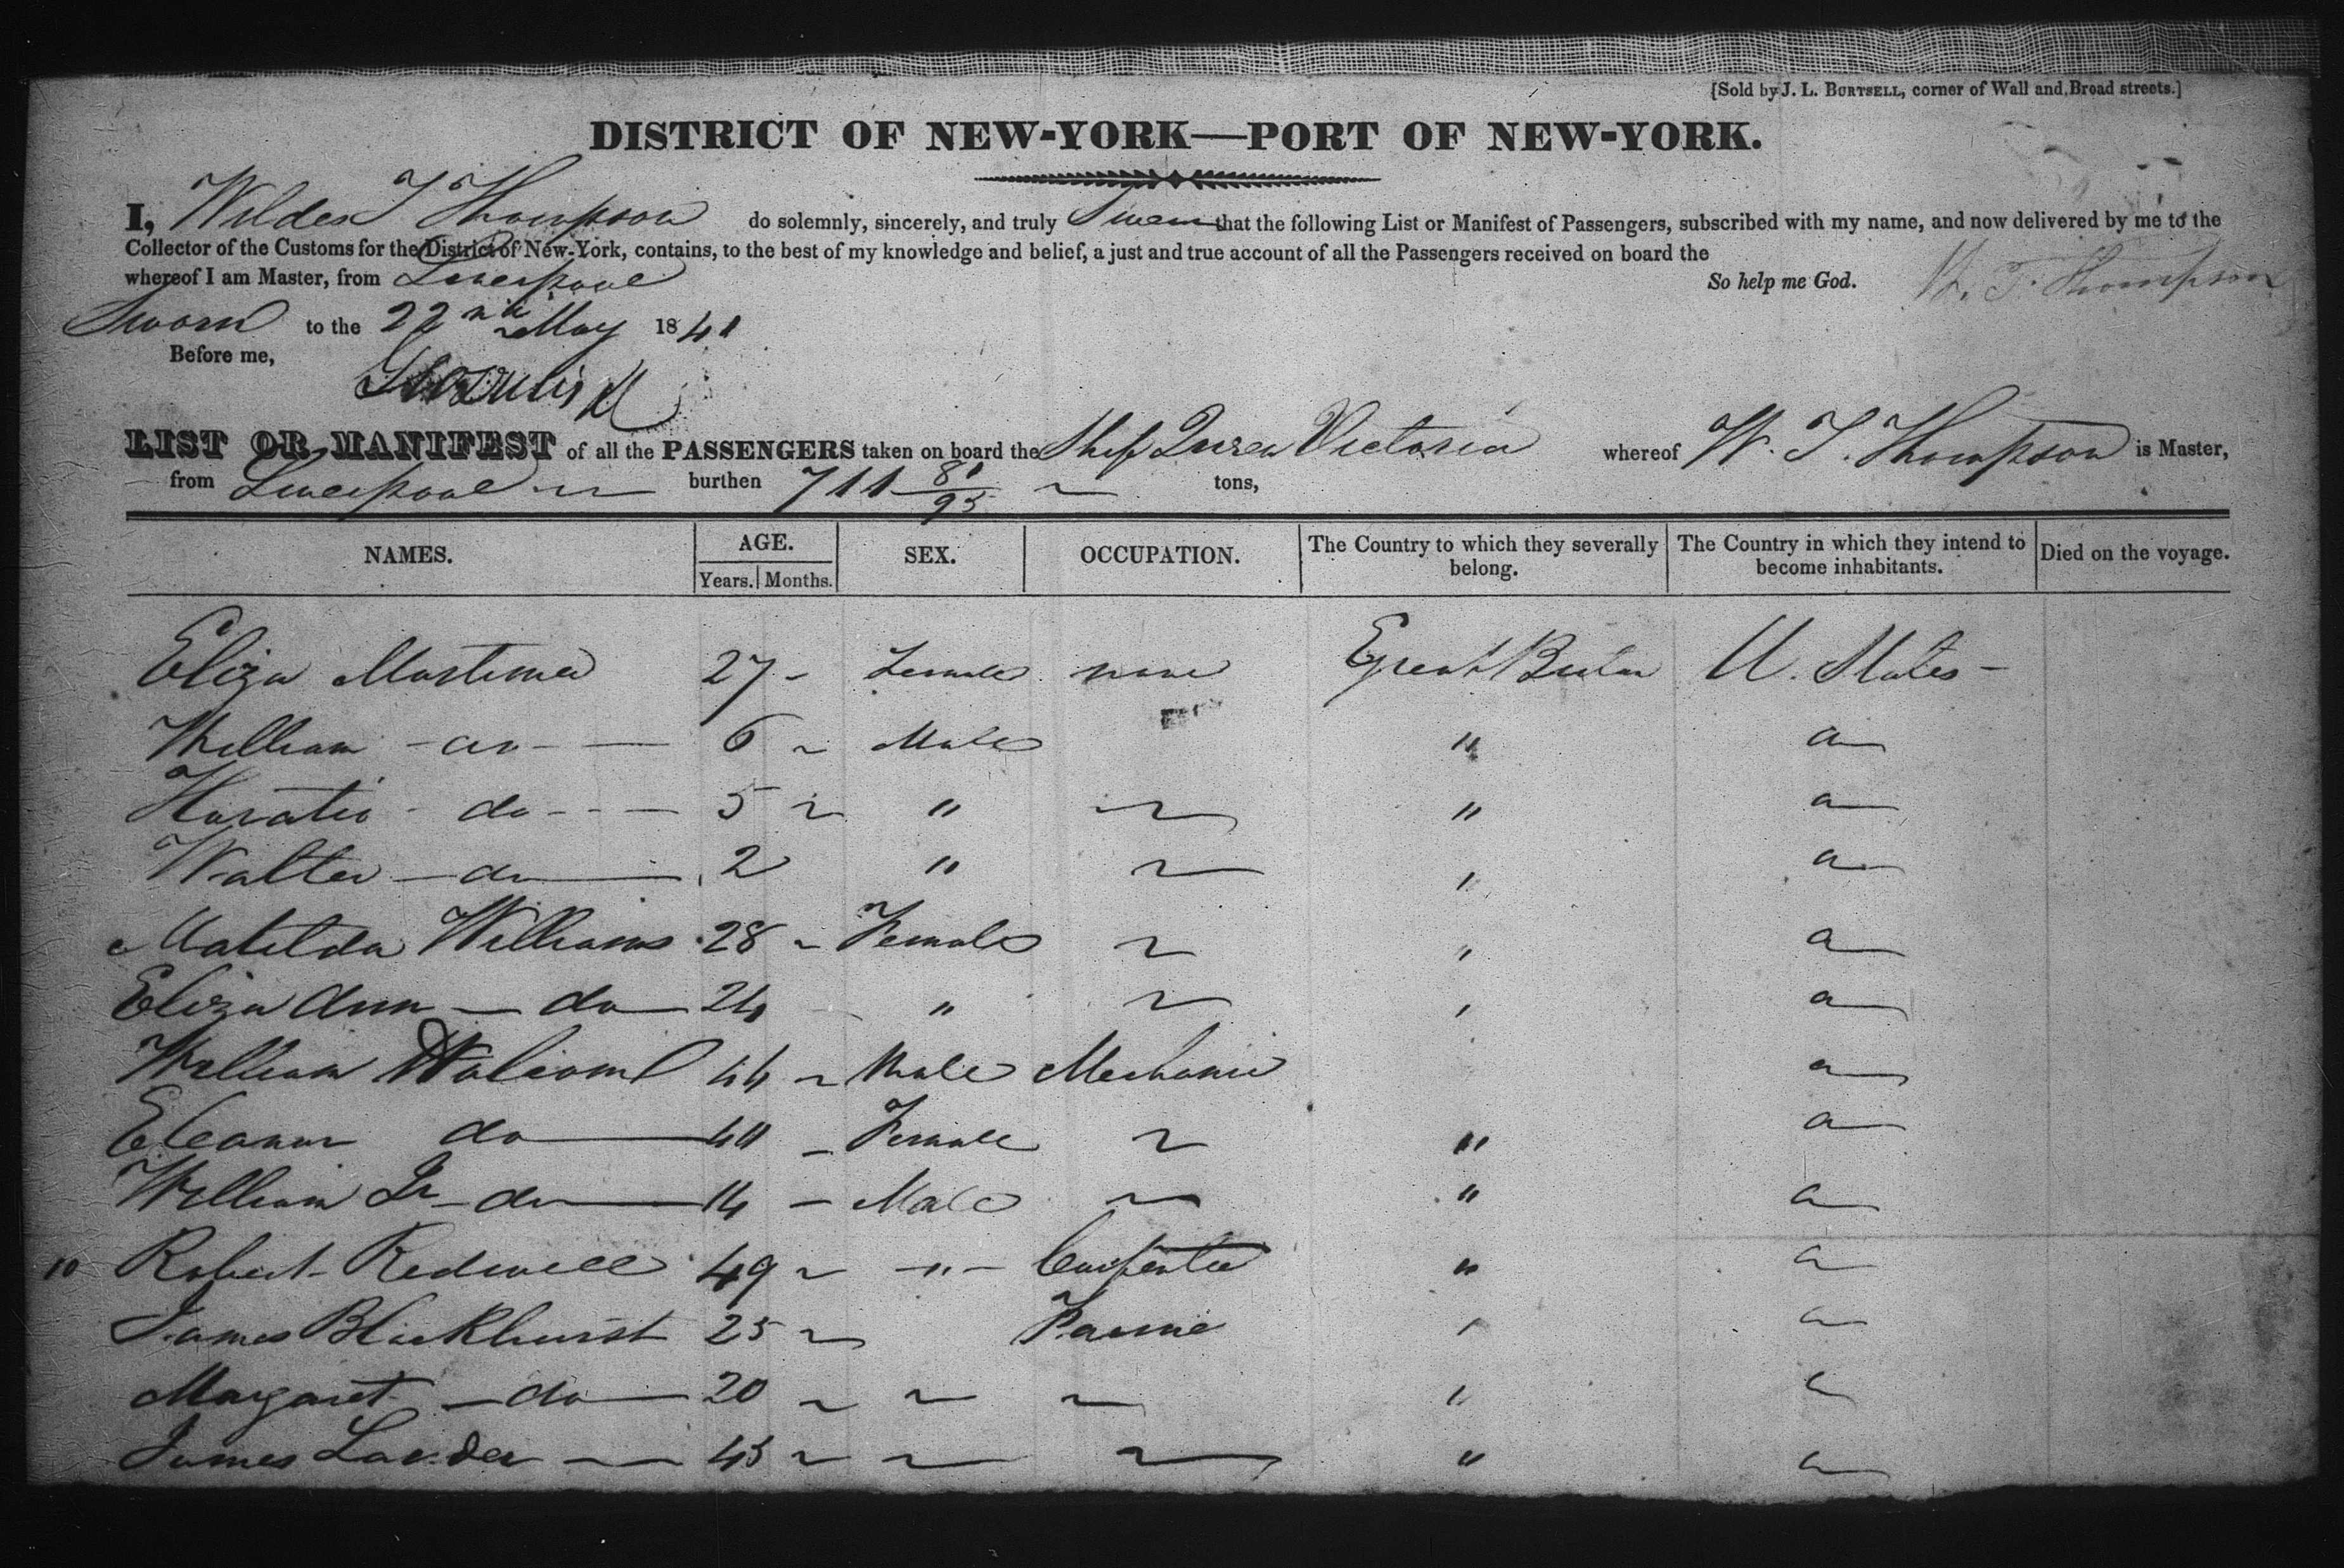 [Sold by J. L. BURTSELL, corner of Wall and Broad streets.]
DISTRICT OF NEW-YORK—PORT OF NEW-YORK.
I, Wildes T Thompson do solemnly, sincerely, and truly Swear that the following List or Manifest of Passengers, subscribed with my name, and now delivered by me to the
Collector of the Customs for the District of New-York, contains, to the best of my knowledge and belief, a just and true account of all the Passengers received on board the
whereof I am Master, from Liverpool So help me God. W. T. Thompson
Sworn to the 22nd May 1841
Before me,
LIST OR MANIFEST of all the PASSENGERS taken on board the Ship Queen Victoria whereof W. T. Thompson is Master,
from Liverpool burthen 711 81/95 tons,
NAMES. AGE. SEX. OCCUPATION. The Country to which they severally belong. The Country in which they intend to become inhabitants. Died on the voyage.
Years. Months.
Eliza Mortimer 27 - Female none Great Britain U. States -
William - do - 6 ~ Male " a
Horatio - do - - - 5 ~ " ~ " a
Walter - do 2 " ~ " a
Matilda Williams 28 ~ Female ~ " a
Eliza Ann - do 24 " ~ " a
William 44 ~ Male Mechanic a
Eleanor do 40 - Female ~ " a
William Jr - do 14 - Male ~ " a
10 Robert Redwell 49 ~ - " - Carpenter " a
James Blackhurst 25 ~ " a
Margaret - do 20 ~ ~ ~ " a
James Lauder 45 ~ ~ ~ " a